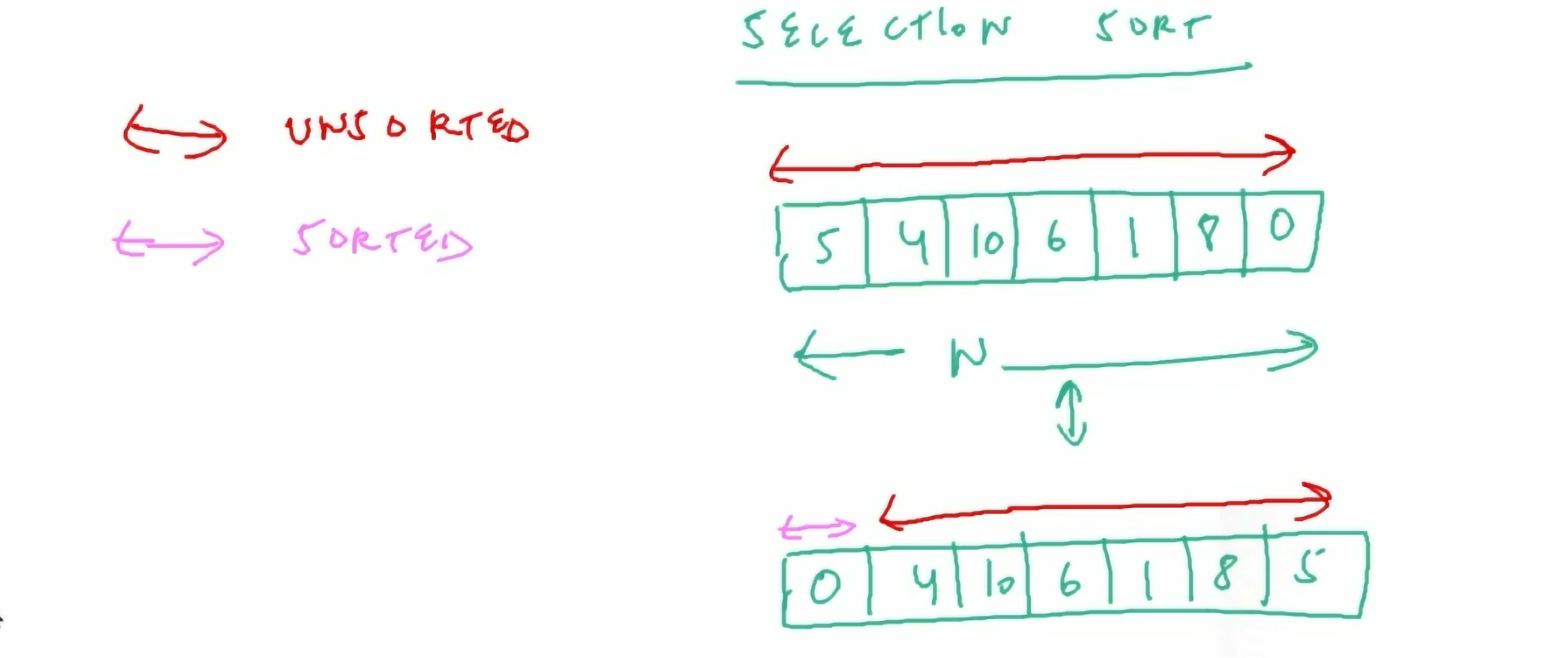 SELECTION SORT
UNSORTED
SORTED
5 4 10 6 1 8 0
N
0 4 10 6 1 8 5